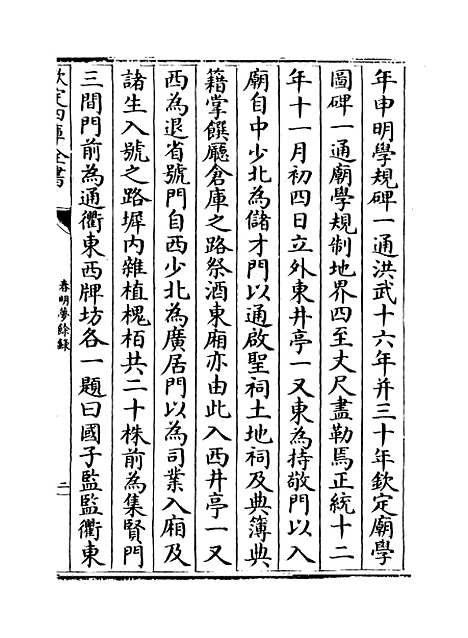 年申明學規碑一通洪武十六年并三十年欽定廟學
圖碑一通廟學規制地界四至丈尺盡勒焉正統十二
年十一月初四日立外東井亭一又東為持敬門以入
廟自中少北為儲才門以通啟聖祠土地祠及典簿典
籍掌饌廳倉庫之路祭酒東廂亦由此入西井亭一又
西為退省號門自西少北為廣居門以為司業入廂及
諸生入號之路墀內雜植槐栢共二十株前為集賢門
三間門前為通衢東西牌坊各一題曰國子監監衢東
欽定四庫全書
春明夢餘錄
二